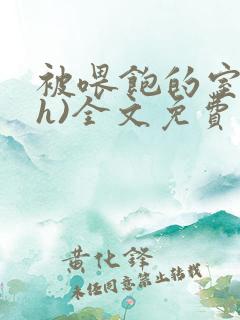 被喂饱的室
h)全文免费
黄化锋
未经同意禁止转载